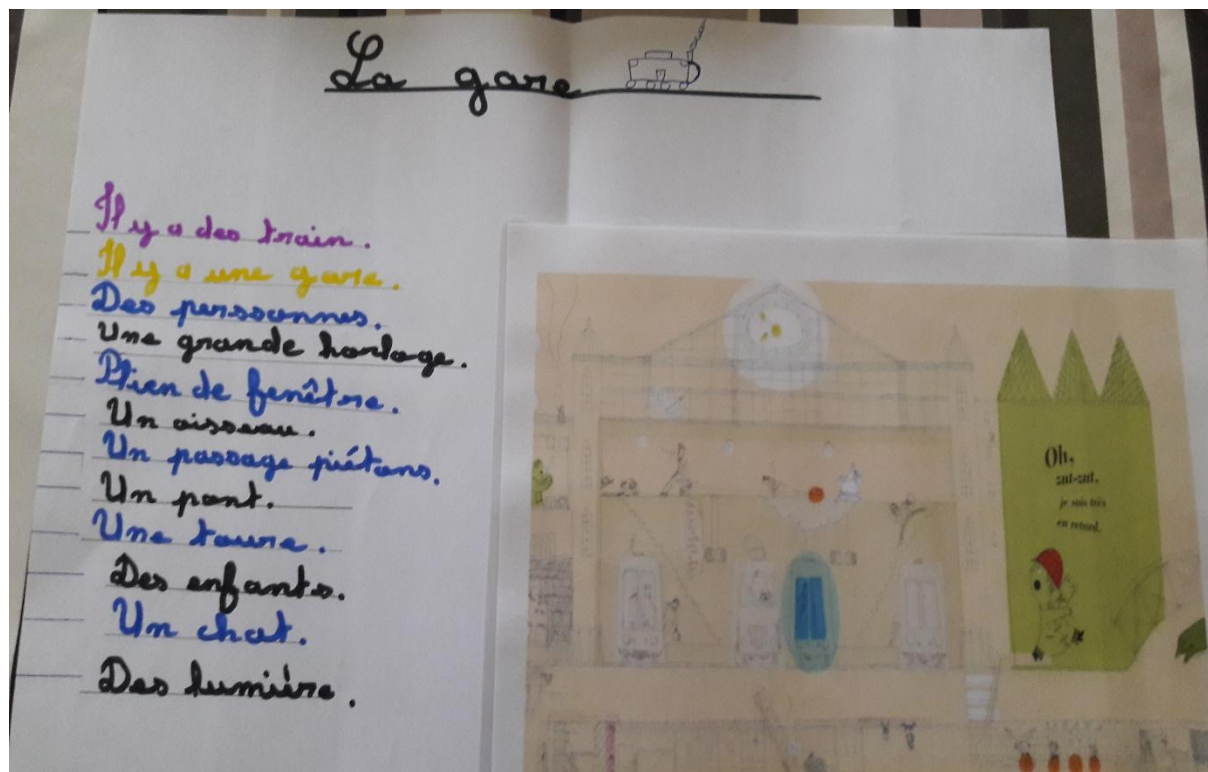 La gare
Il y a des train.
Il y a une gare.
Des personnes.
Une grande horloge.
Plien de fenêtre.
Un oisseau.
Un passage piétons.
Un pont.
Une toure.
Des enfants.
Un chat.
Des lumière.
Oh,
zut-zut,
je suis très
en retard.